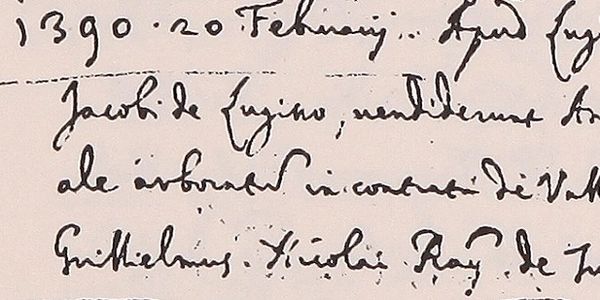 1390 · 20 Februarij .. Apud Lug
Jacobi de Lugino, uendiderunt An
ale arboratũ in contrata de Vall
Guillielmus. Nicolai Ray de